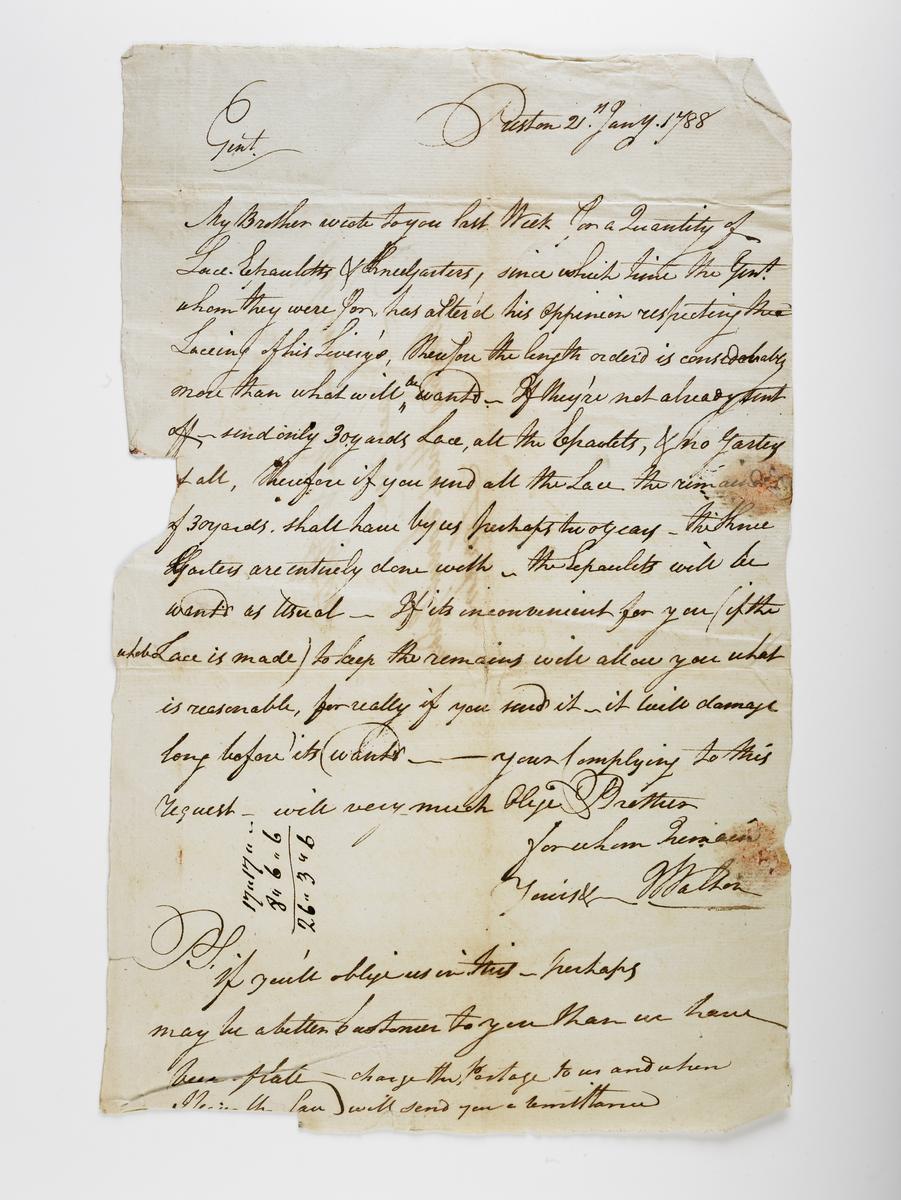 Preston 21st Jany. 1788
Gent.
My Brother wrote to you last Week for a Quantity of
Lace. Epauletts & Kneegarters, since which time the Gent.
whom they were for, has alter'd his oppinion respecting the
Laceing of his Livery's, therefore the length order'd is considerably
more than what will be wanted - If they're not already sent
off - send only 30 yards Lace, all the Epaulets, & no Garters
at all, therefore if you send all the Lace the remains
of 30 yards. shall have by us perhaps two years - the Knee
Garters are entirely done with - the Epaulets will be
wanted as Usual - If its inconvenient for you (if the
whole Lace is made) to keep the remains will allow you what
is reasonable, for really if you send it - it will damage
long before its wanted - - your Complying to this
request - will very much Oblige Brother
for whom Remain
Yours & Walton
17 " 17 "
8 " 6 " 6
26 " 3 " 6
PS.
If you'll oblige us in this - perhaps
may be a better Customer to you than we have
been of late - charge the Postage to us and when
the Lace) will send you a remittance